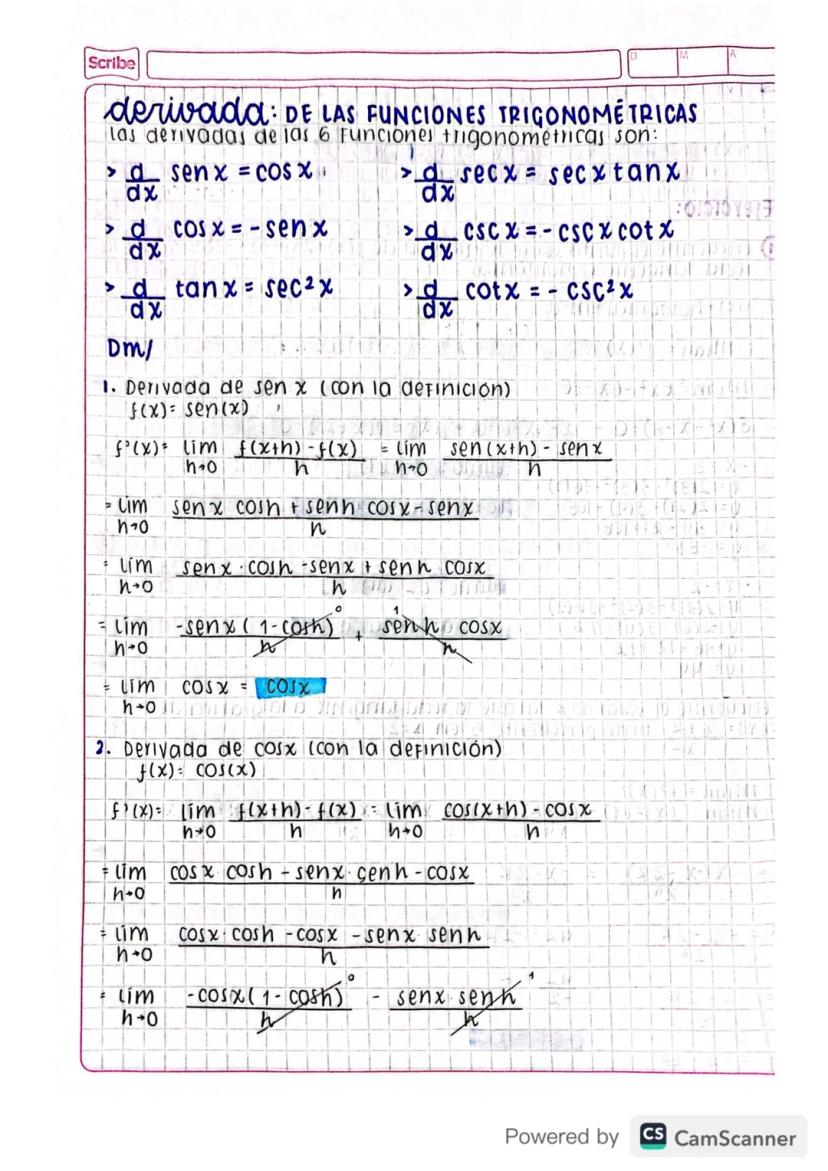 Scribe
D M A
derivada: DE LAS FUNCIONES TRIGONOMÉTRICAS
las derivadas de las 6 funciones trigonométricas son:
> d/dx sen x = cos x > d/dx sec x = sec x tan x
> d/dx cos x = - sen x > d/dx csc x = - csc x cot x
> d/dx tan x = sec² x > d/dx cot x = - csc² x
Dm/
1. Derivada de sen x (con la definición)
f(x) = sen(x)
f'(x) = lím h→0 f(x+h) - f(x) / h = lím h→0 sen(x+h) - sen x / h
= lím h→0 sen x cos h + sen h cos x - sen x / h
= lím h→0 sen x · cos h - sen x + sen h cos x / h
= lím h→0 -sen x (1 - cos h) 0 / h + 1 sen h cos x / h
= lím h→0 cos x = cos x
2. Derivada de cos x (con la definición)
f(x) = cos(x)
f'(x) = lím h→0 f(x+h) - f(x) / h = lím h→0 cos(x+h) - cos x / h
= lím h→0 cos x · cos h - sen x · sen h - cos x / h
= lím h→0 cos x · cos h - cos x - sen x · sen h / h
= lím h→0 -cos x (1 - cos h) 0 / h - sen x · sen h 1 / h
Powered by CS CamScanner